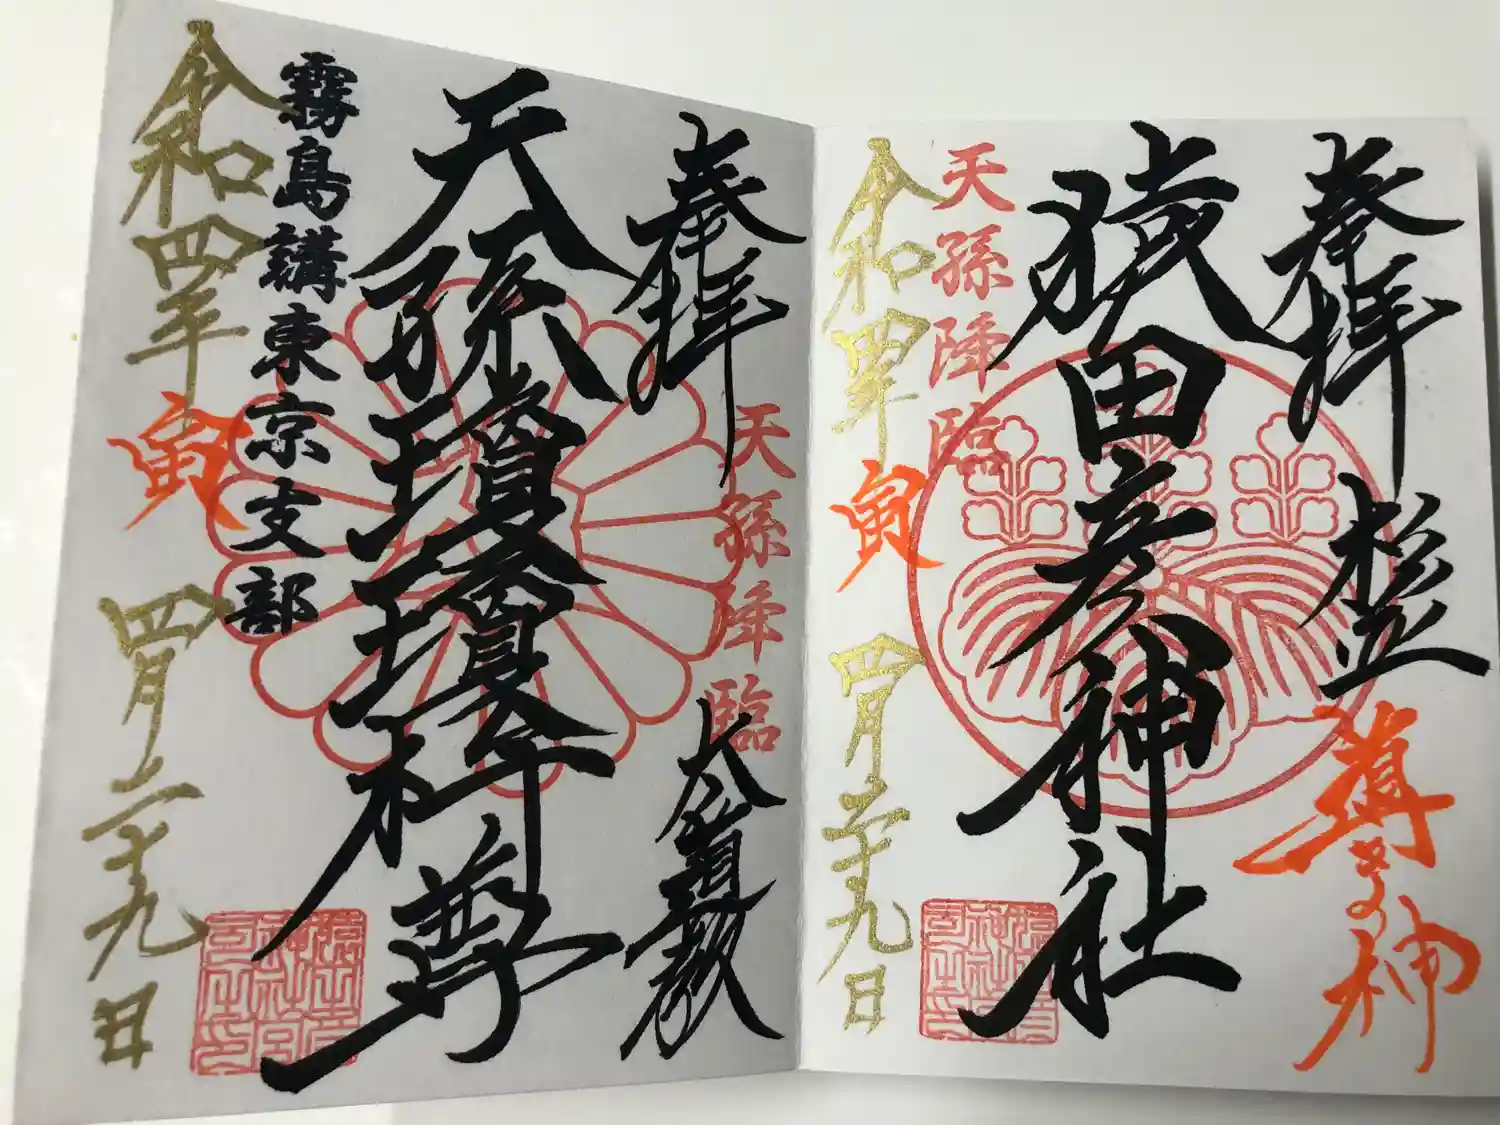 奉拝
導きの神
猿田彦神社
天孫降臨
令和四年 寅 四月二十九日
奉拝
天孫降臨
天孫瓊瓊杵尊
霧島講東京支部
令和四年 寅 四月二十九日